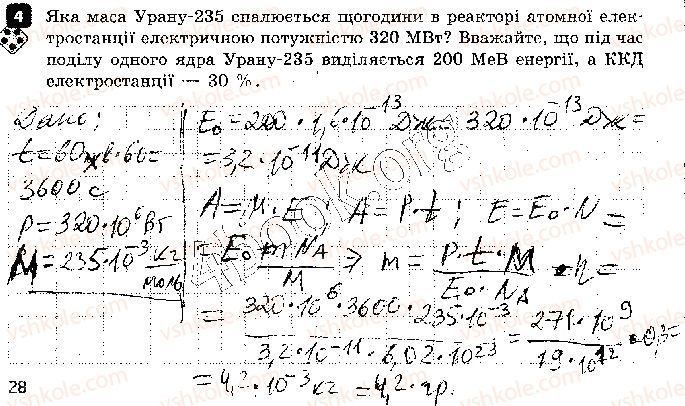 4 Яка маса Урану-235 спалюється щогодини в реакторі атомної елек-
тростанції електричною потужністю 320 МВт? Вважайте, що під час
поділу одного ядра Урану-235 виділяється 200 МеВ енергії, а ККД
електростанції — 30 %.
Дано:
t = 60хв·60 =
3600 с
P = 320·10⁶ Вт
M = 235·10⁻³ кг/моль
E₀ = 200·1,6·10⁻¹³ Дж = 320·10⁻¹³ Дж =
= 3,2·10⁻¹¹ Дж
A = η·E; A = P·t; E = E₀·N =
= E₀ m N_A / M ⇒ m = P·t·M / E₀·N_A · η =
= 320·10⁶·3600·235·10⁻³ / 3,2·10⁻¹¹·6,02·10²³ = 271·10⁹ / 19·10¹² · 0,3 =
= 4,2·10⁻³ кг = 4,2 гр.
28
4book.org
vshkole.com